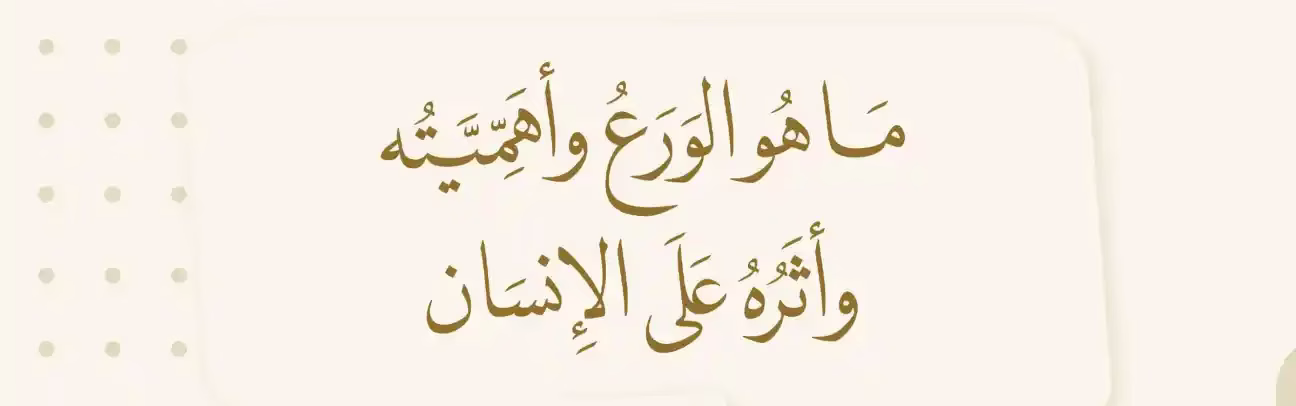 مَا هُو الوَرَعُ وأهَمِّيَّتُه
وأثَرُهُ عَلَى الإِنسَان